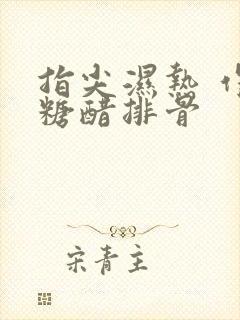 指尖濕熱
糖醋排骨
宋青主